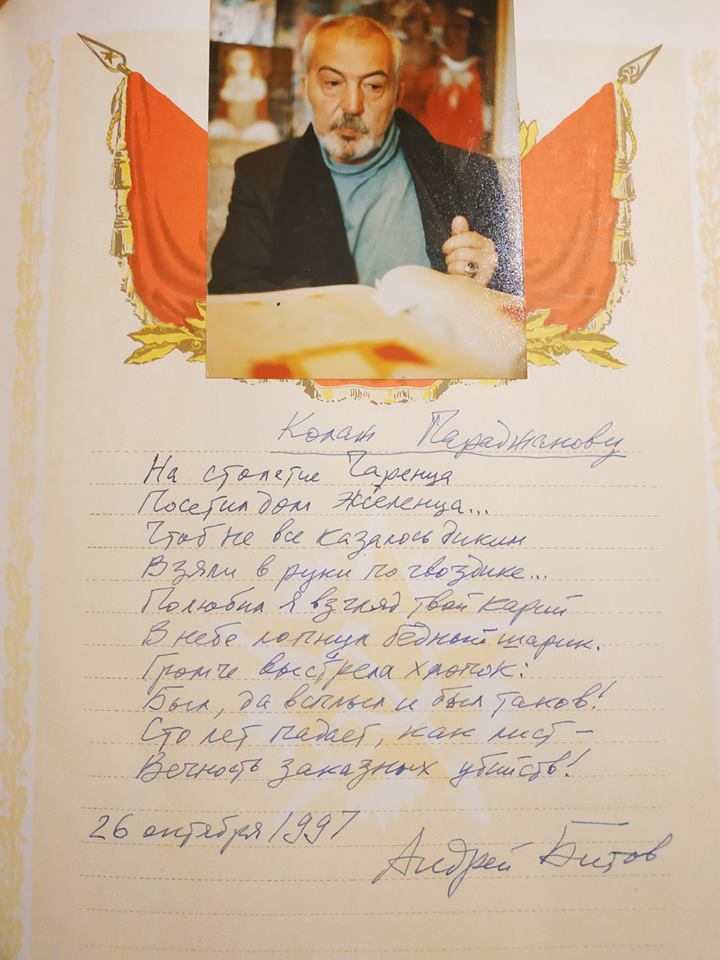 Коллаж Параджанову
На столетие Чаренца
Посетил дом Жителенца...
Чтоб не все казалось диким
Взяли в руки по гвоздике...
Полюбил я взгляд твой карий
В небе лопнул бедный шарик.
Громче выстрела хлопок:
Был, да всплыл и был таков!
Сто лет падает, как лист –
Вечность заказных убийств!
26 октября 1997
Андрей Битов